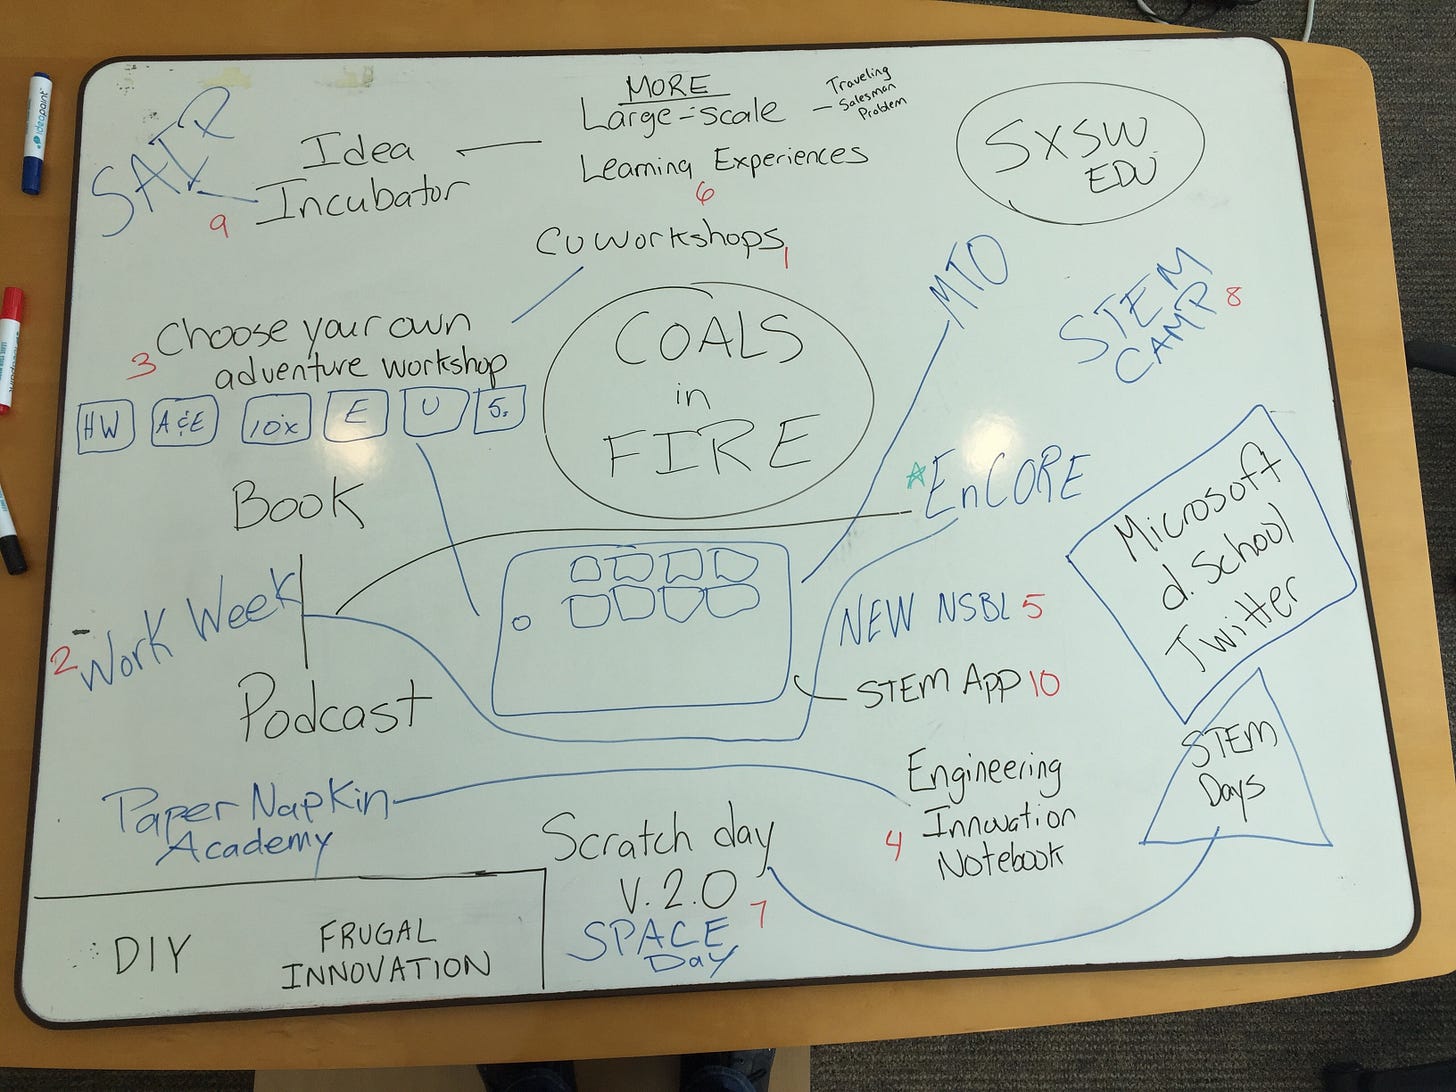 MORE
Large-scale
Traveling
Salesman
Problem
Learning Experiences
6
SXSW
EDU
Idea
Incubator
9
CU Workshops
1
MTO
STEM
CAMP
8
Choose your own
adventure workshop
3
HW
A&E
10x
E
U
5.
COALS
in
FIRE
EnCORE
Book
Work Week
2
Podcast
NEW NSBL 5
STEM APP 10
Microsoft
d. School
Twitter
STEM
Days
Paper Napkin
Academy
Engineering
Innovation
Notebook
4
Scratch day
V. 2.0
7
SPACE
Day
DIY
FRUGAL
INNOVATION
ideapaint